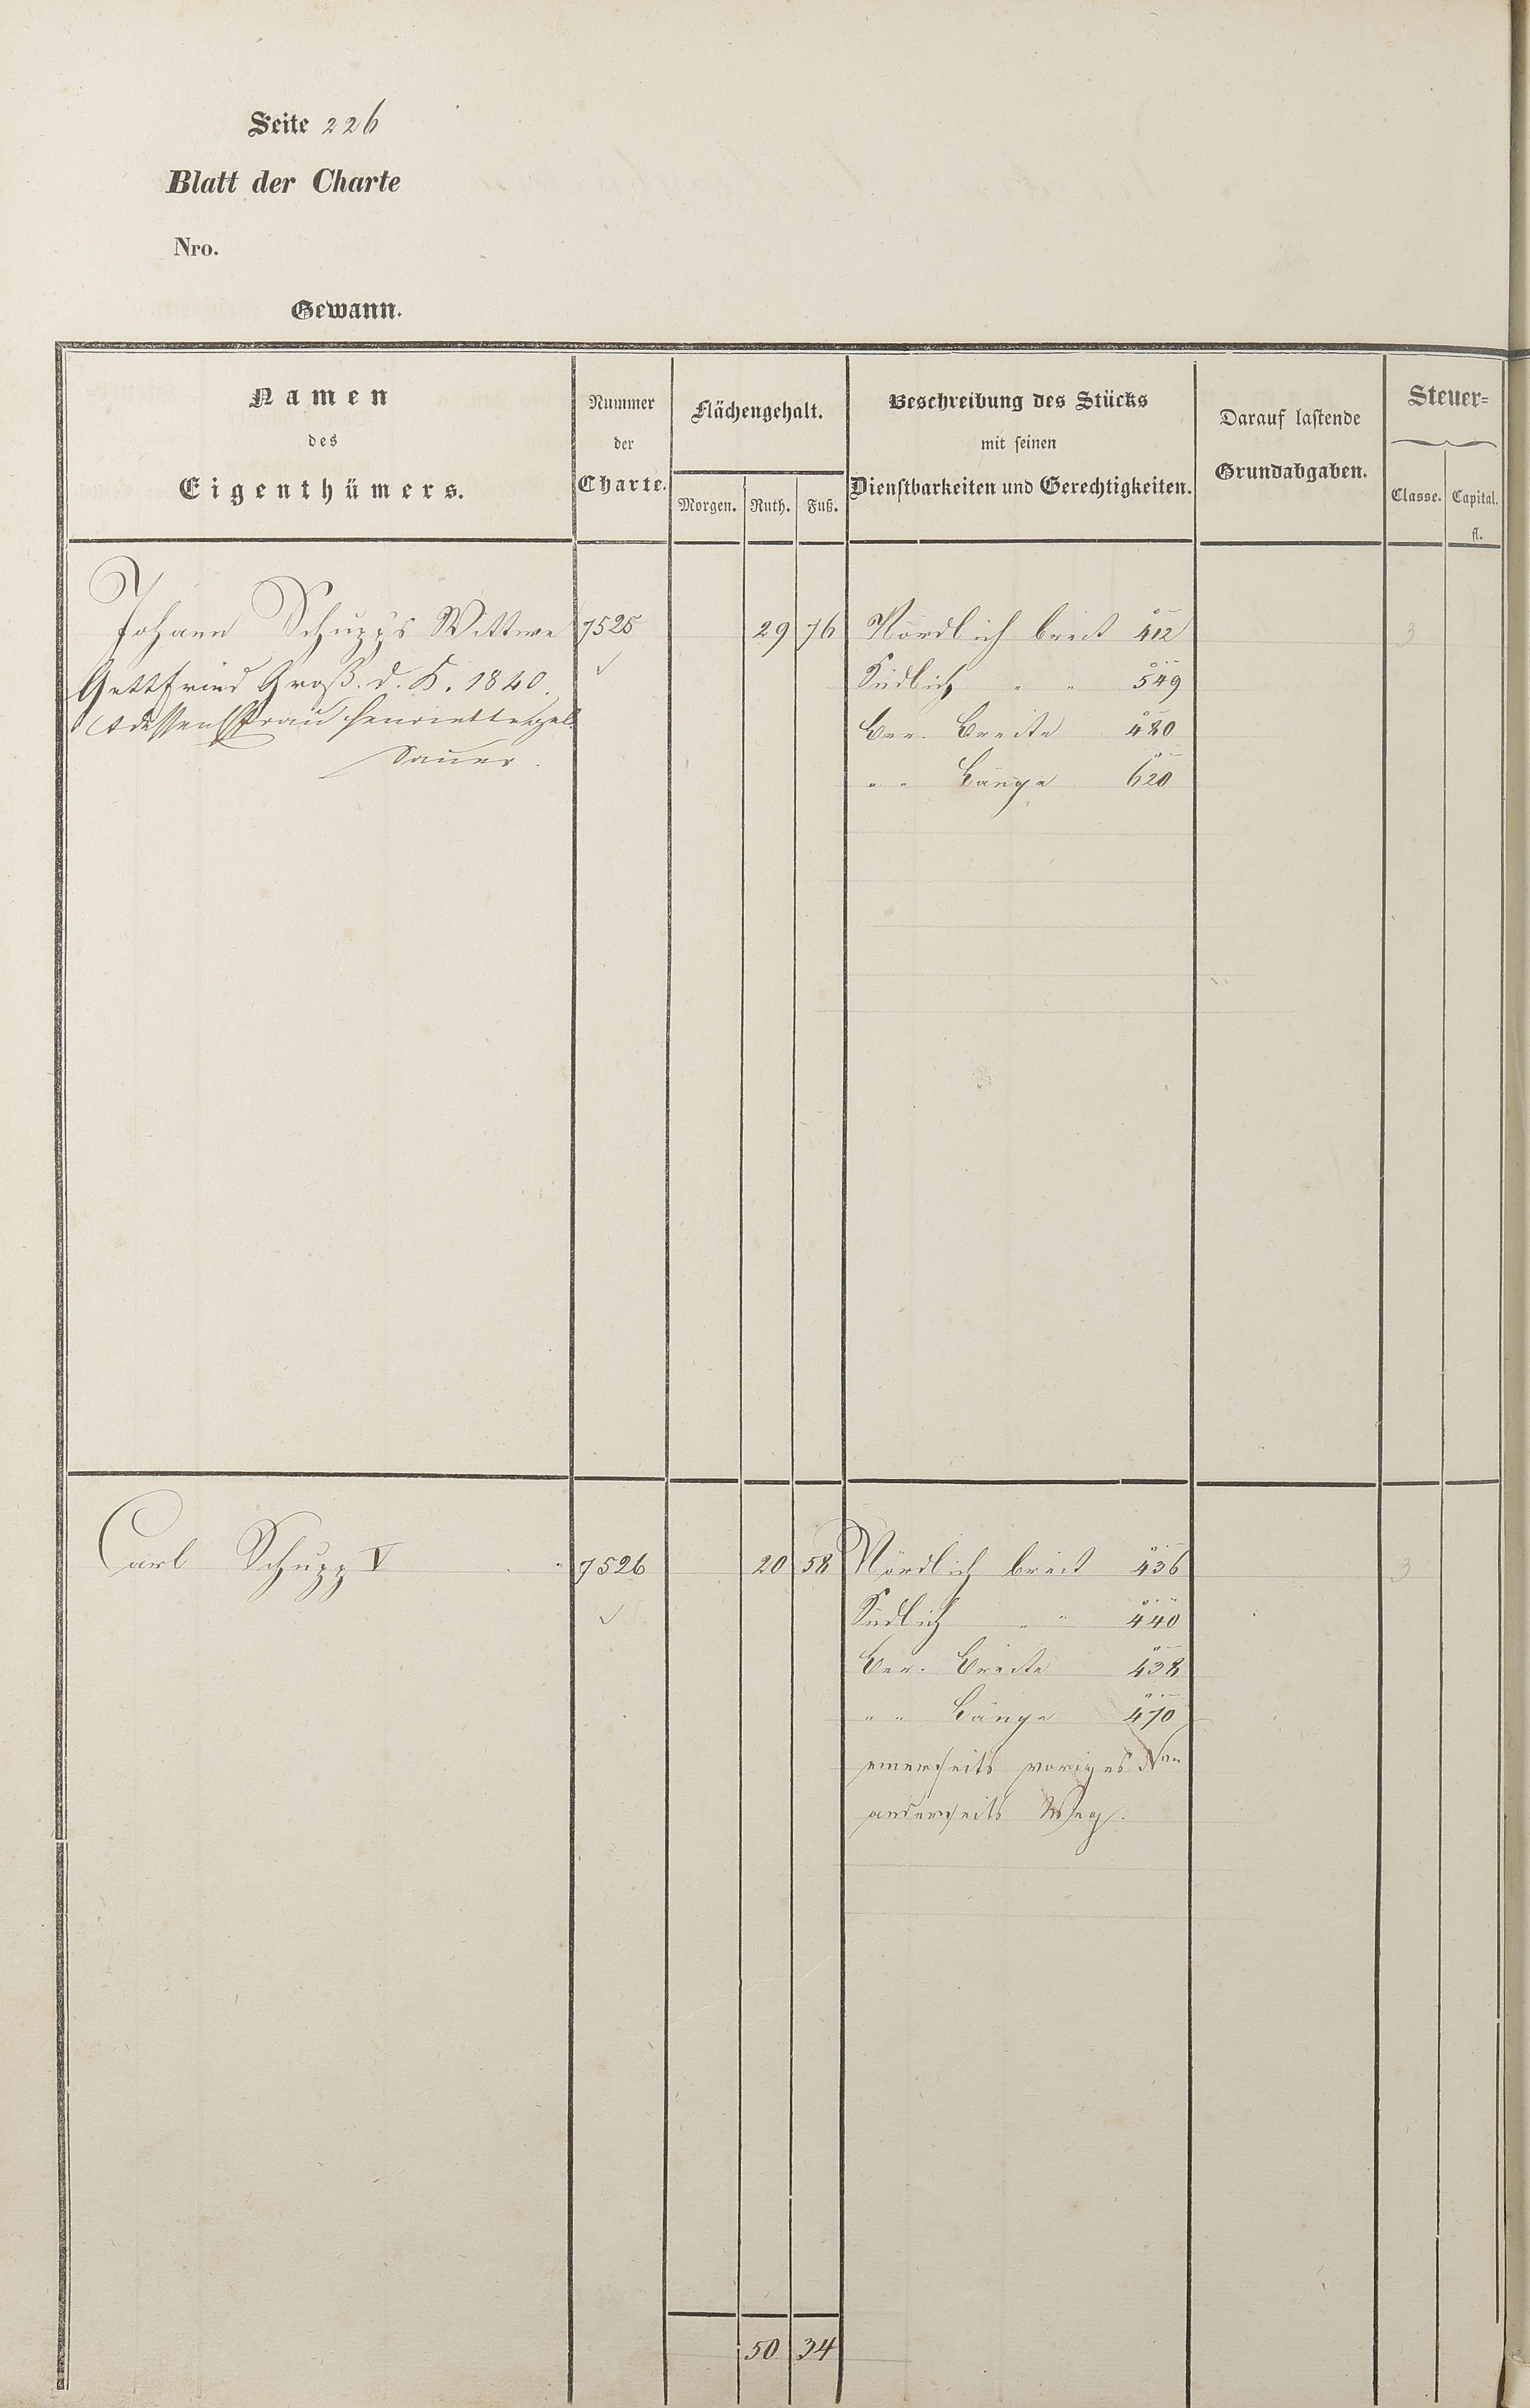 Seite 226
Blatt der Charte
Nro.
Gewann.
Namen
des
Eigenthümers.
Nummer
der
Charte.
Flächengehalt.
Morgen. Ruth. Fuß.
Beschreibung des Stücks
mit seinen
Dienstbarkeiten und Gerechtigkeiten.
Darauf lastende
Grundabgaben.
Steuer=
Classe. Capital.
fl.
Johann Schupp's Wittwe 7525 29 76 Nördlich breit 412 3
Gottfried Groß. d. K. 1840. Südlich " " 549
dessen Frau Henriette geb. Ber. Breite 480
Sauer. " " Länge 620
Carl Schupp V 7526 20 58 Nördlich breit 436 3
Südlich " " 440
Ber. Breite 438
" " Länge 470
einerseits voriges Nro
anderseits Weg.
50 34